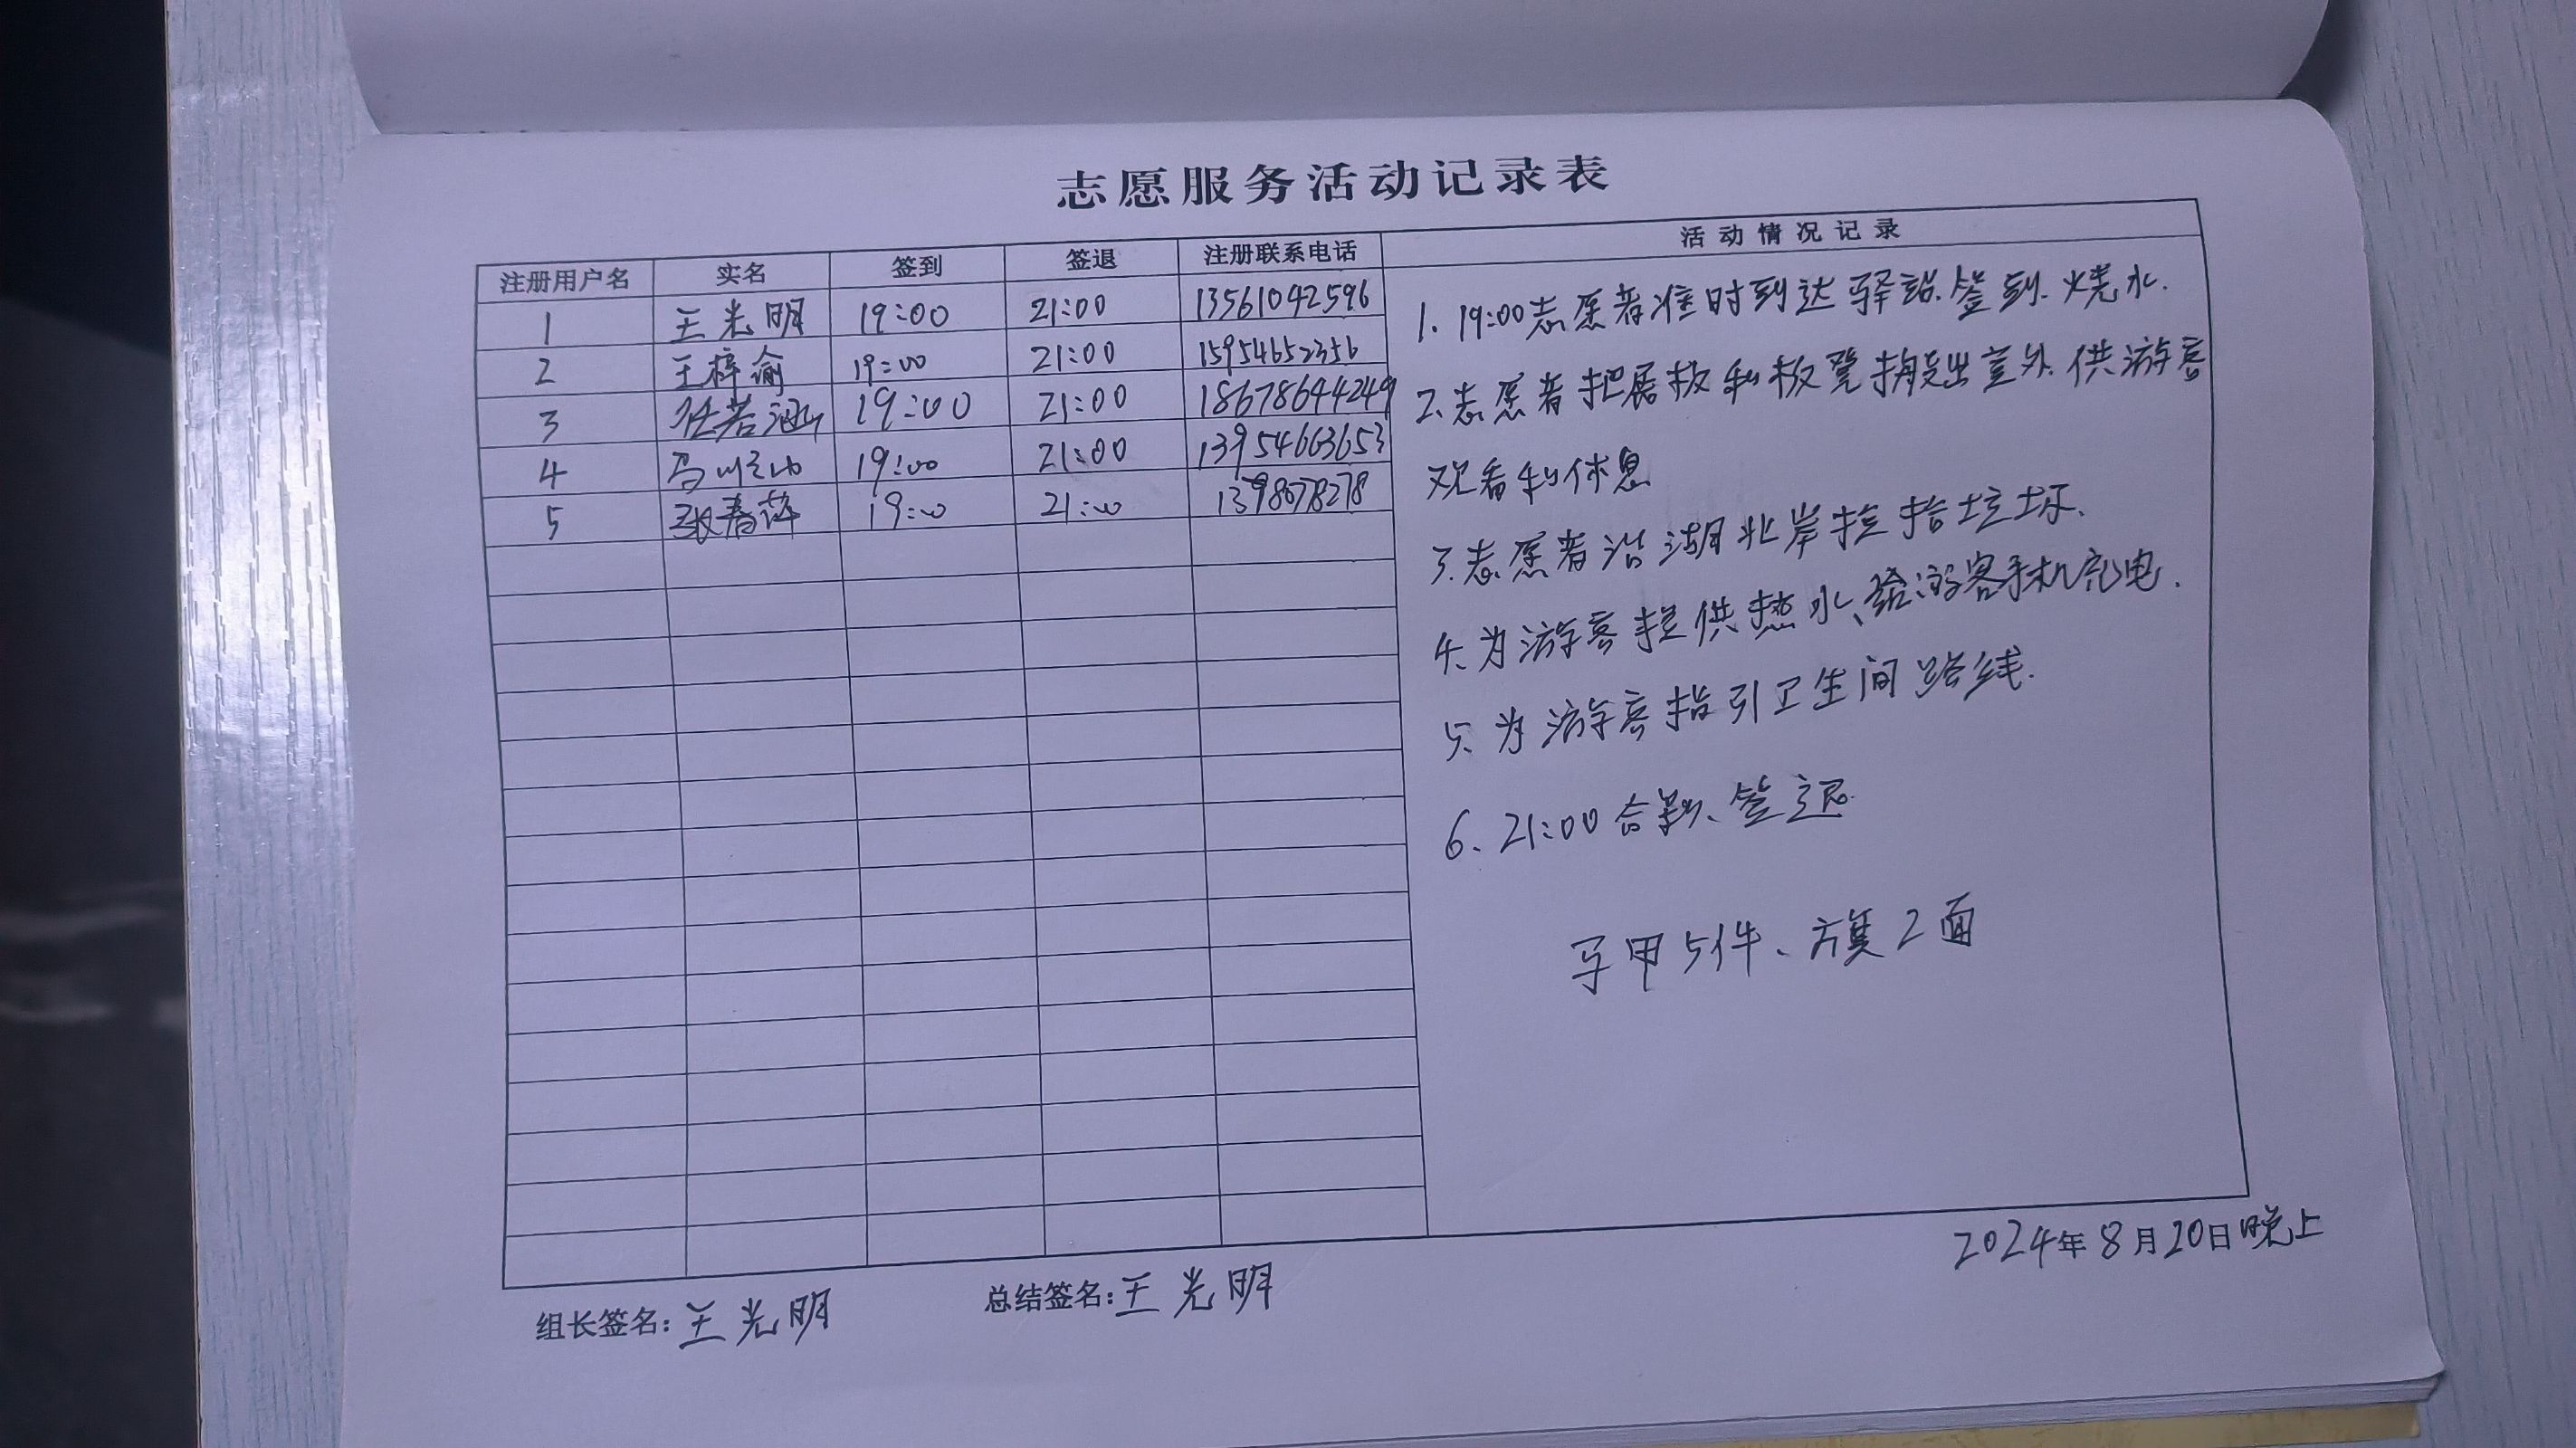 志愿服务活动记录表
注册用户名 实名 签到 签退 注册联系电话 活动情况记录
1 王光明 19:00 21:00 13561042596
2 王梓谕 19:00 21:00 15954652356
3 任若涵 19:00 21:00 18678644249
4 马 19:00 21:00 13954663653
5 张春萍 19:00 21:00
1. 19:00志愿者准时到达驿站、签到、烧水.
2.志愿者把展板和板凳搬出室外、供游客
观看和休息
3.志愿者沿湖北岸捡拾垃圾、
4、为游客提供热水、给游客手机充电.
5、为游客指引卫生间路线.
6、21:00合影、签退.
马甲5件、旗2面
2024年8月20日晚上
组长签名:王光明 总结签名:王光明